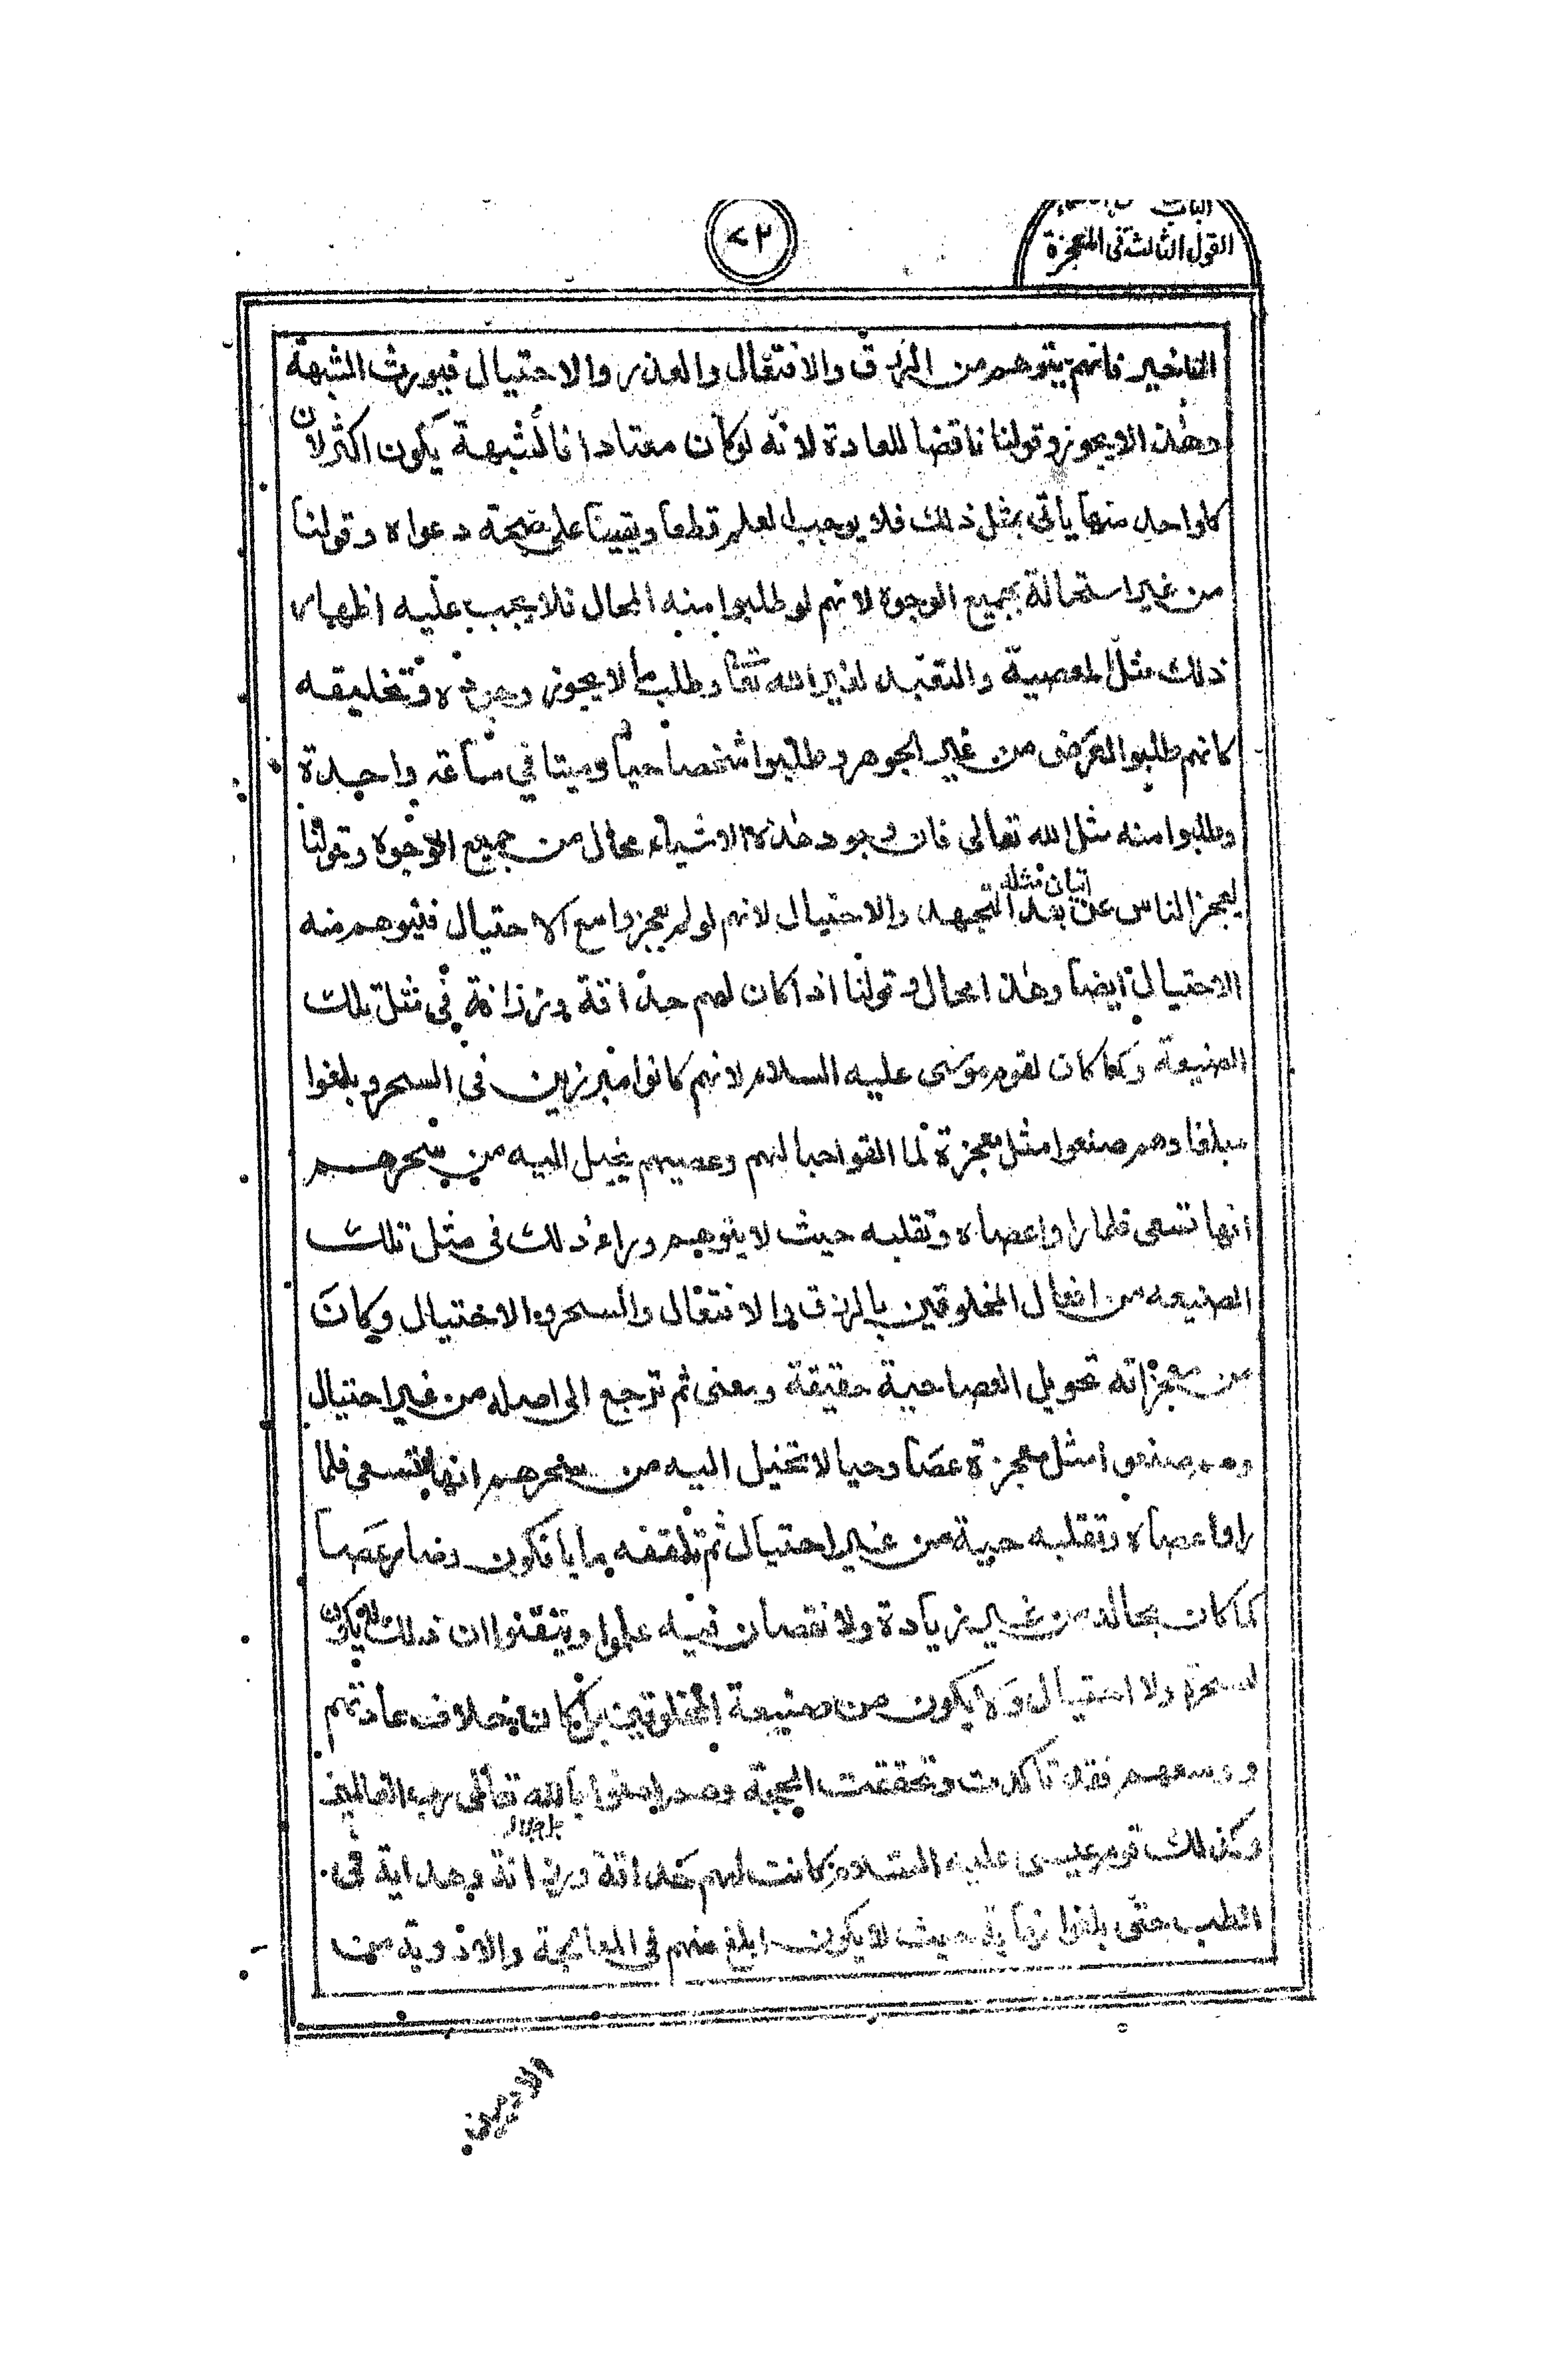 القول الثالث في المعجزة
٧٢
التاخير فانهم يتوهم من الزرق والافتعال والعذر والاحتيال فيورث الشبهة
وهذا لا يجوز وقولنا ناقضا للعادة لانه لو كان معتادا فالشبهة يكون اكثر لان
كل واحد منها ياتي بمثل ذلك فلا يوجب العلم قطعا ويقينا على صحة دعواه وقولنا
من غير استحالة بجميع الوجوه لانهم لو طلبوا منه المحال فلا يجب عليه اظهار
ذلك مثل المعصية والتعبد لغير الله تعا وطلب ما لا يجوز وجوده وتخليقه
كانهم طلبوا العرض من غير الجوهر وطلبوا شخصا حيا وميتا في ساعة واحدة
وطلبوا منه مثل الله تعالى فان وجود هذه الاشياء محال من جميع الوجوه وقولنا
يعجز الناس عن اتيان مثله بعد التجهد والاحتيال لانهم لو لم يعجزوا مع الاحتيال فيتوهم منه
الاحتيال ايضا وهذا محال وقولنا اذا كان لهم حذاقة ورزانة في مثل تلك
الصنيعة وكما كان لقوم موسى عليه السلام لانهم كانوا مبرزين في السحر وبلغوا
مبلغا وهم صنعوا مثل معجزة لما القوا حبالهم وعصيهم يخيل اليه من سحرهم
انها تسعى فلما راوا عصاه وتقلبه حيث لا يتوهم وراء ذلك في مثل تلك
الصنيعه من افعال المخلوقين بالزرق والافتعال والسحر والاحتيال وكان
من معجزاته تحويل العصا حية حقيقة ومعنى ثم ترجع الى اصله من غير احتيال
وهم صنعوا مثل معجزة عصا وحيا لا تخيل اليه من سحرهم انها تسعى فلما
راوا عصاه وتقلبه حية من غير احتيال ثم تلقفه ما يافكون وصار عصا
كما كان بحاله من غير زيادة ولا نقصان فيه علموا ويتقنوا ان ذلك لا يكون
لسحر ولا احتيال ولا يكون من صنيعة المخلوقين بل كان بخلاف عادتهم
ووسعهم فقد تاكدت وتحققت الحجة وصدوا منوا بالله تعالى رب العالمين
وكذلك قوم عيسى عليه السلام كانت لهم حذاقة ورزانة وهداية في
الطب حتى بلغوا نهاية حيث لا يكون ابلغ منهم في المعالجة والادوية من